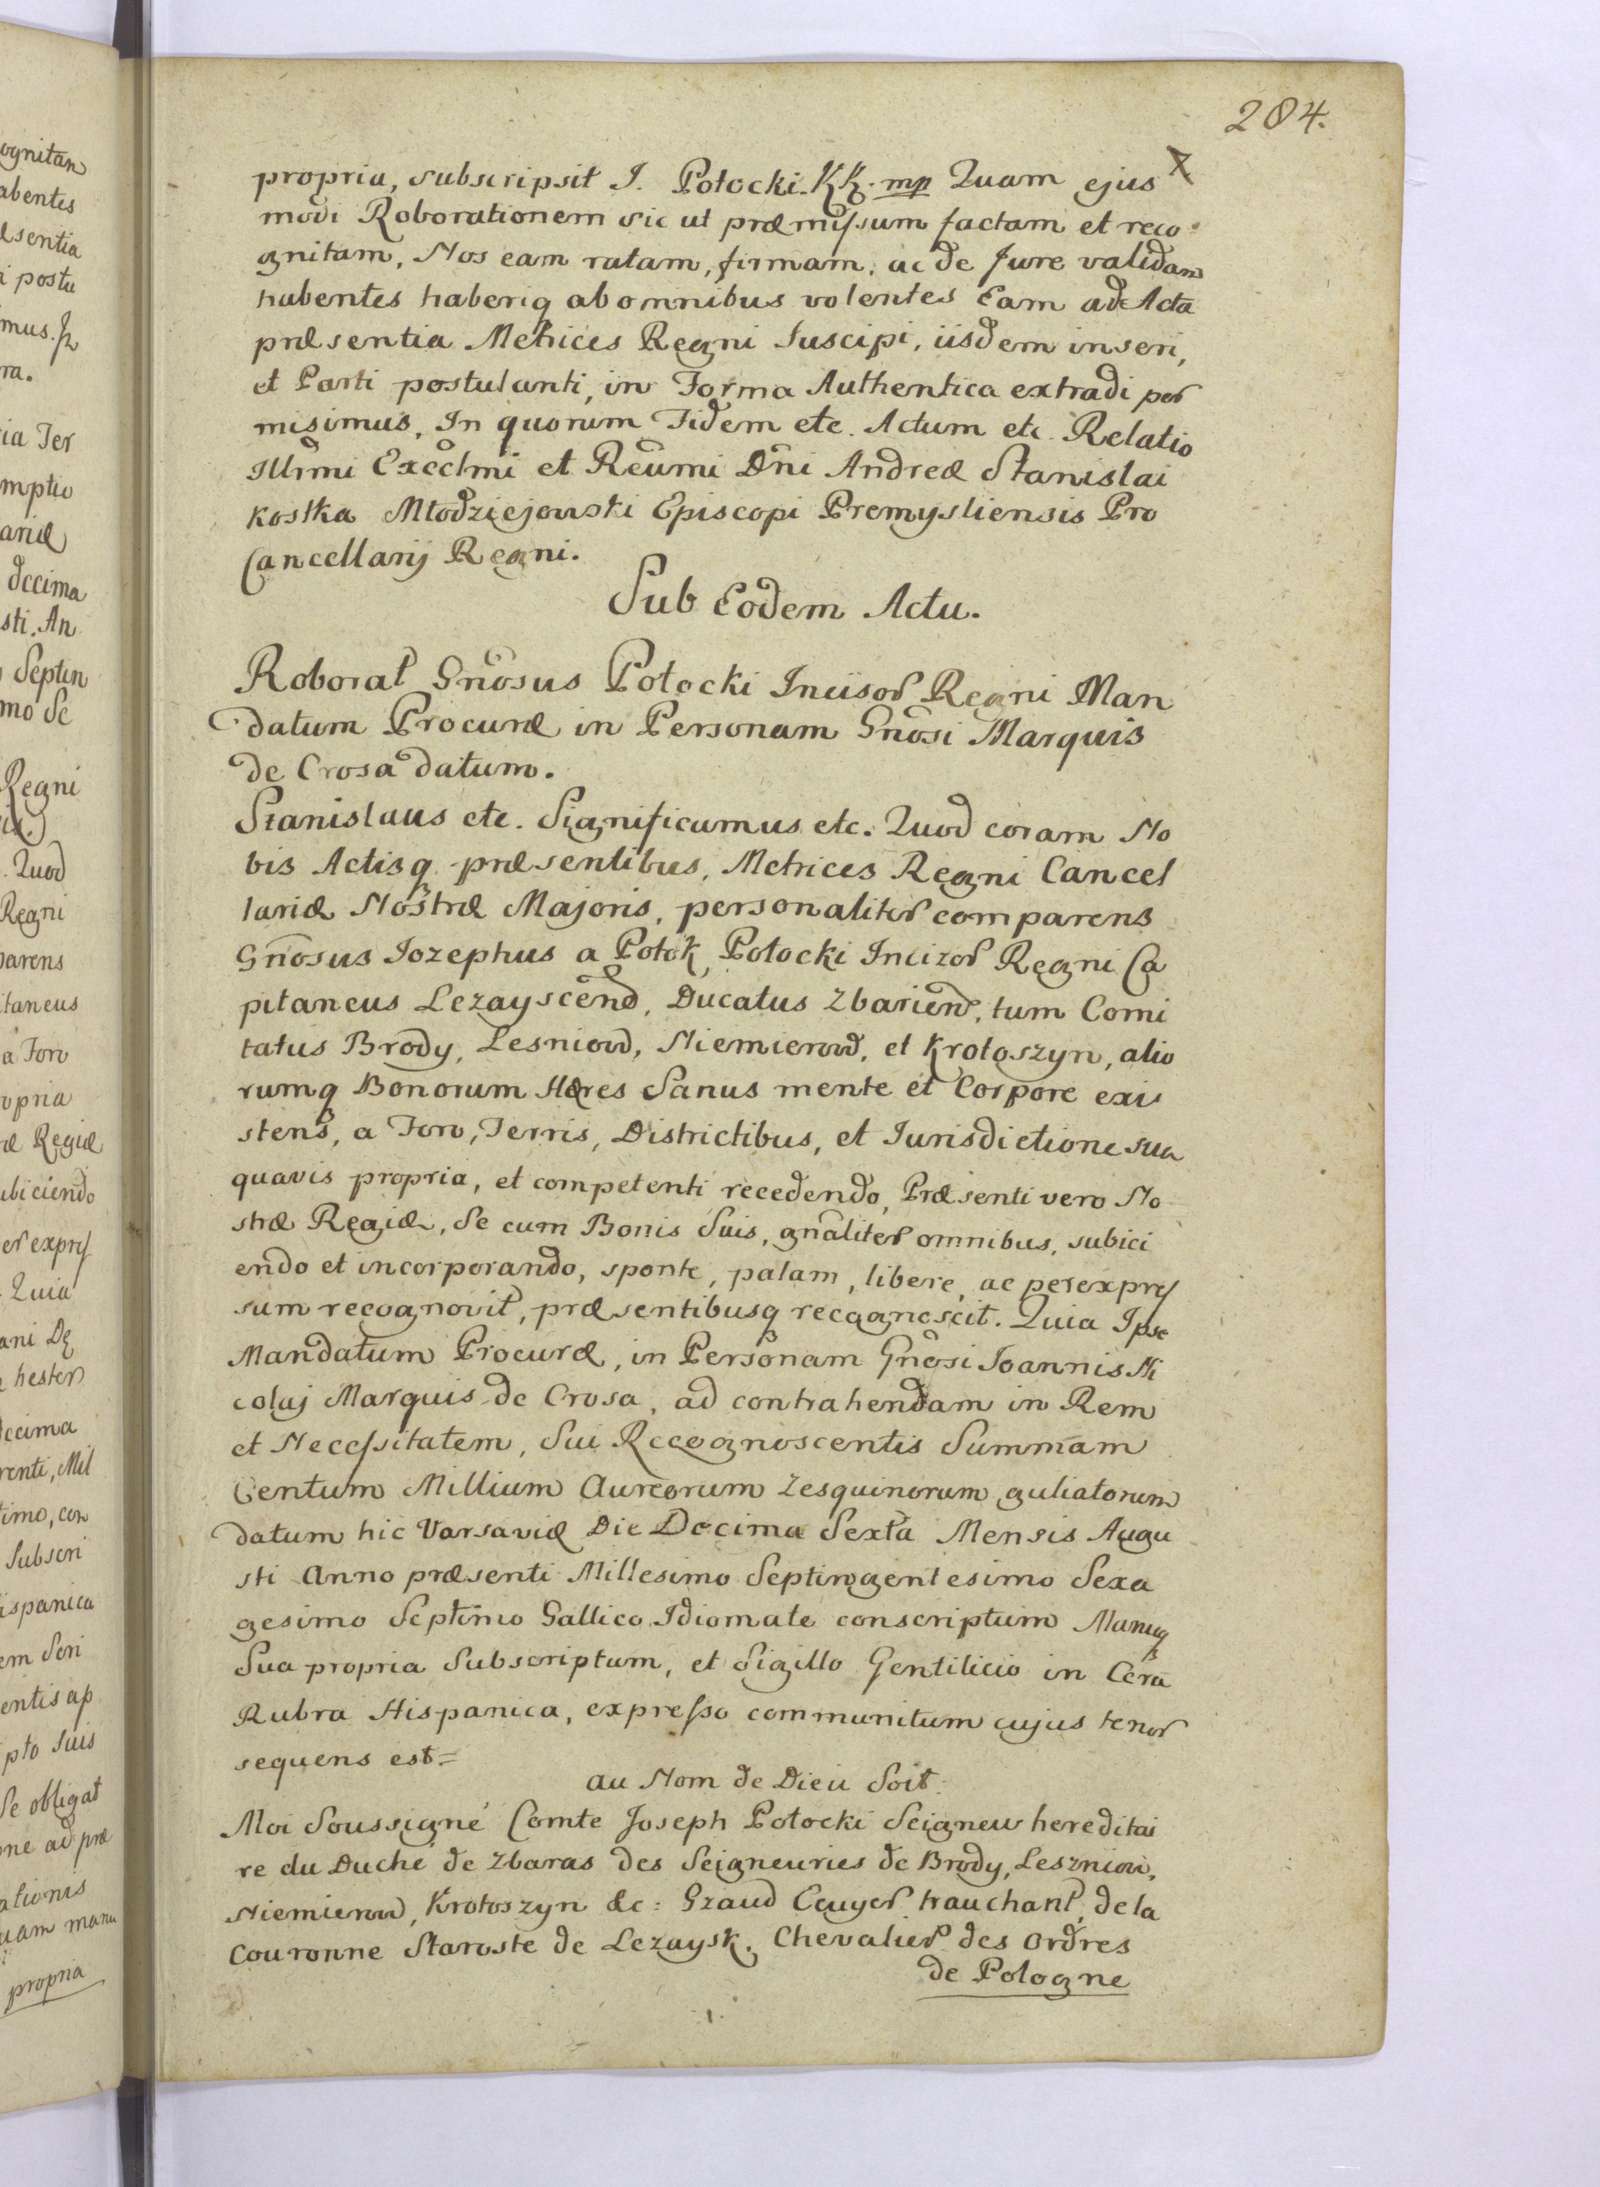 284.
propria, subscripsit J. Potocki KK. mp Quam ejus
modi Roborationem sic ut præmissum factam et reco
gnitam, Nos eam ratam, firmam, ac de Jure validam
habentes haberiq ab omnibus volentes Eam ad Acta
præsentia Metrices Regni suscipi, iisdem inseri,
et Parti postulanti, in Forma Authentica extradi per
misimus, In quorum Fidem etc. Actum etc. Relatio
Illrmi Excelmi et Reumi Dni Andreæ Stanislai
Kostka Młodziejowski Episcopi Premysliensis Pro
Cancellarij Regni.
Sub Eodem Actu.
Roborat Gnosus Potocki Incisor Regni Man
datum Procuræ in Personam Gnosi Marquis
de Crosa datum.
Stanislaus etc. Significamus etc. Quod coram No
bis Actisq præsentibus, Metrices Regni Cancel
lariæ Nostræ Majoris, personaliter comparens
Gnosus Jozephus a Potok, Potocki Incizor Regni Ca
pitaneus Lezayscend, Ducatus Zbariend, tum Comi
tatus Brody, Lesniow, Niemierow, et Krotoszyn, alio
rumq Bonorum Hæres Sanus mente et Corpore exi
stens, a Foro, Terris, Districtibus, et Jurisdictione sua
quavis propria, et competenti recedendo, Præsenti vero No
stræ Regiæ, Se cum Bonis Suis, gnaliter omnibus, subici
endo et incorporando, sponte, palam, libere, ac per expres
sum recognovit, præsentibusq recognoscit. Quia Ipse
Mandatum Procuræ, in Personam Gnosi Joannis Ni
colaj Marquis de Crosa, ad contrahendam in Rem
et Necessitatem, Sui Recognoscentis Summam
Centum Millium Aureorum Zesquinorum guliatorum
datum hic Varsaviæ Die Decima Sexta Mensis Augu
sti Anno præsenti Millesimo Septingentesimo Sexa
gesimo Septimo Gallico Idiomate conscriptum Manuq
Sua propria Subscriptum, et Sigillo Gentilicio in Cera
Rubra Hispanica, expresso communitum cujus tenor
sequens est=
au Nom de Dieu Soit
Moi Soussigné Comte Joseph Potocki Seigneur hereditai
re du Duché de Zbaras des Seigneuries de Brody, Leszniow,
Niemierow, Krotoszyn &c: Graud Ecuyer trauchant, de la
Couronne Staroste de Lezaysk. Chevalier des Ordres
de Pologne